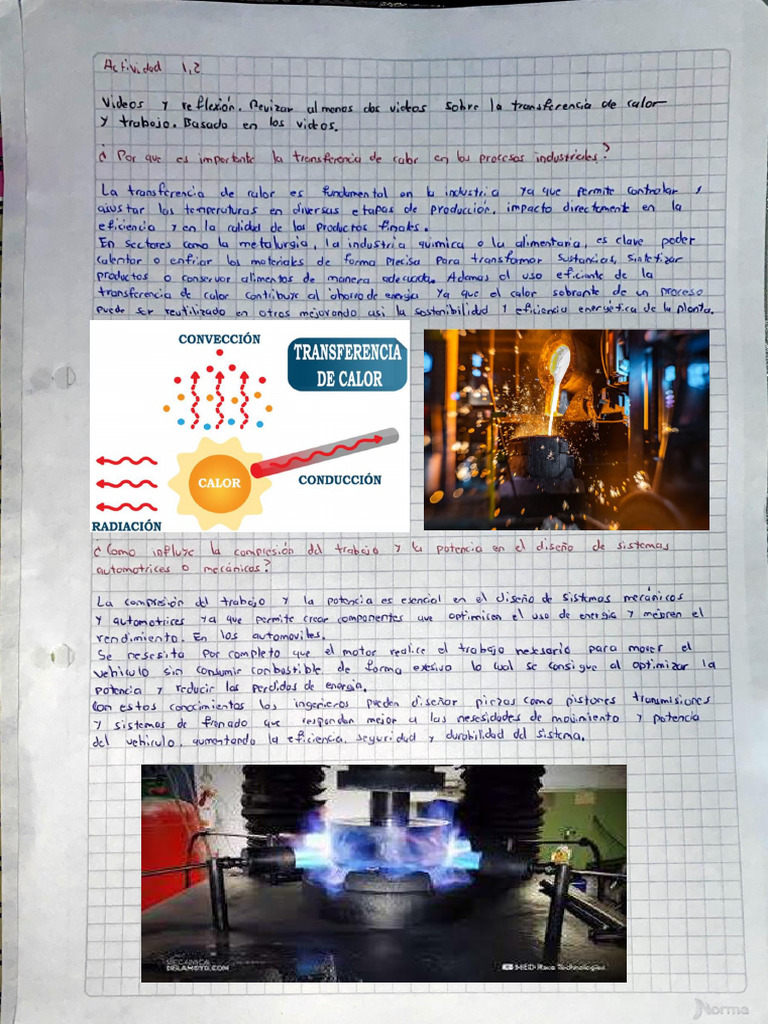 Actividad 1,2
Videos y reflexión. Revizar al menos dos videos sobre la transferencia de calor
y trabajo. Basado en los videos.
¿Por que es importante la transferencia de calor en los procesos industriales?
La transferencia de calor es fundamental en la industria ya que permite controlar y
ajustar las temperaturas en diversas etapas de producción, impacto directamente en la
eficiencia y en la calidad de los productos finales.
En Sectores como la metalurgia, la industria química o la alimentaria, es clave poder
calentar o enfriar los materiales de forma precisa para transformar sustancias, sintetizar
productos o conservar alimentos de manera adecuada. Ademas el uso eficiente de la
transferencia de calor contribuye al ahorro de energia ya que el calor sobrante de un proceso
puede ser reutilizado en otros mejorando asi la sostenibilidad y eficiencia energética de la planta.
CONVECCIÓN
TRANSFERENCIA
DE CALOR
CALOR
CONDUCCIÓN
RADIACIÓN
¿Como influye la compresión del trabajo y la potencia en el diseño de sistemas
automotrices o mecánicos?
La compresión del trabajo y la potencia es esencial en el diseño de sistemas mecánicos
y automotrices ya que permite crear componentes que optimicen el uso de energia y mejoren el
rendimiento. En los automoviles.
Se nesesita por completo que el motor realice el trabajo nesesario para mover el
vehiculo sin consumir combustible de forma exesiva lo cual se consigue al optimizar la
potencia y reducir las perdidas de energia.
Con estos conocimientos los ingenieros pueden diseñar piezas como pistones transmisiones
y sistemas de frenado que respondan mejor a las nesesidades de movimiento y potencia
del vehiculo, aumentando la eficiencia, seguridad y durabilidad del sistema.
MECANICA
DELAMOTO.COM
Technologies
Norma